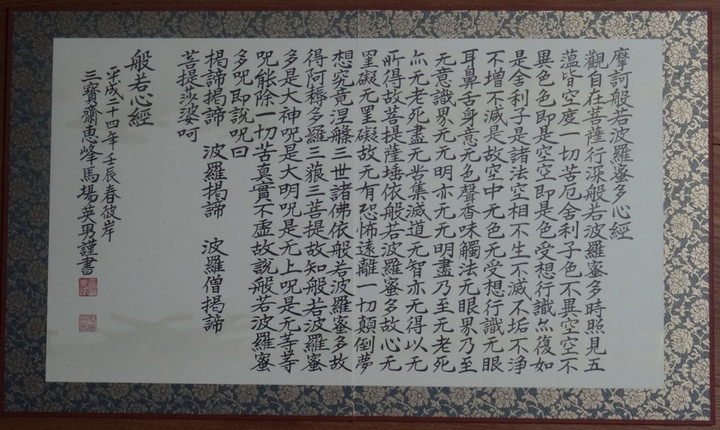 摩訶般若波羅蜜多心經
觀自在菩薩行深般若波羅蜜多時照見五
蕰皆空度一切苦厄舍利子色不異空空不
異色色即是空空即是色受想行識亦復如
是舍利子是諸法空相不生不滅不垢不淨
不增不減是故空中无色无受想行識无眼
耳鼻舌身意无色聲香味觸法无眼界乃至
无意識界无无明亦无无明盡乃至无老死
亦无老死盡无苦集滅道无智亦无得以无
所得故菩提薩埵依般若波羅蜜多故心无
罣礙无罣礙故无有恐怖遠離一切顛倒夢
想究竟涅槃三世諸佛依般若波羅蜜多故
得阿耨多羅三藐三菩提故知般若波羅蜜
多是大神呪是大明呪是无上呪是无等等
呪能除一切苦真實不虛故說般若波羅蜜
多呪即說呪曰
揭諦揭諦　波羅揭諦　波羅僧揭諦
菩提莎婆呵
般若心經
平成二十四年壬辰春彼岸
三寶齋惠峰馬場英男謹書